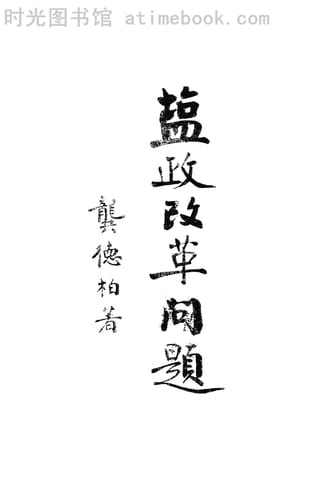 时光图书馆 atimebook.com
盐政改革问题
龔德柏著